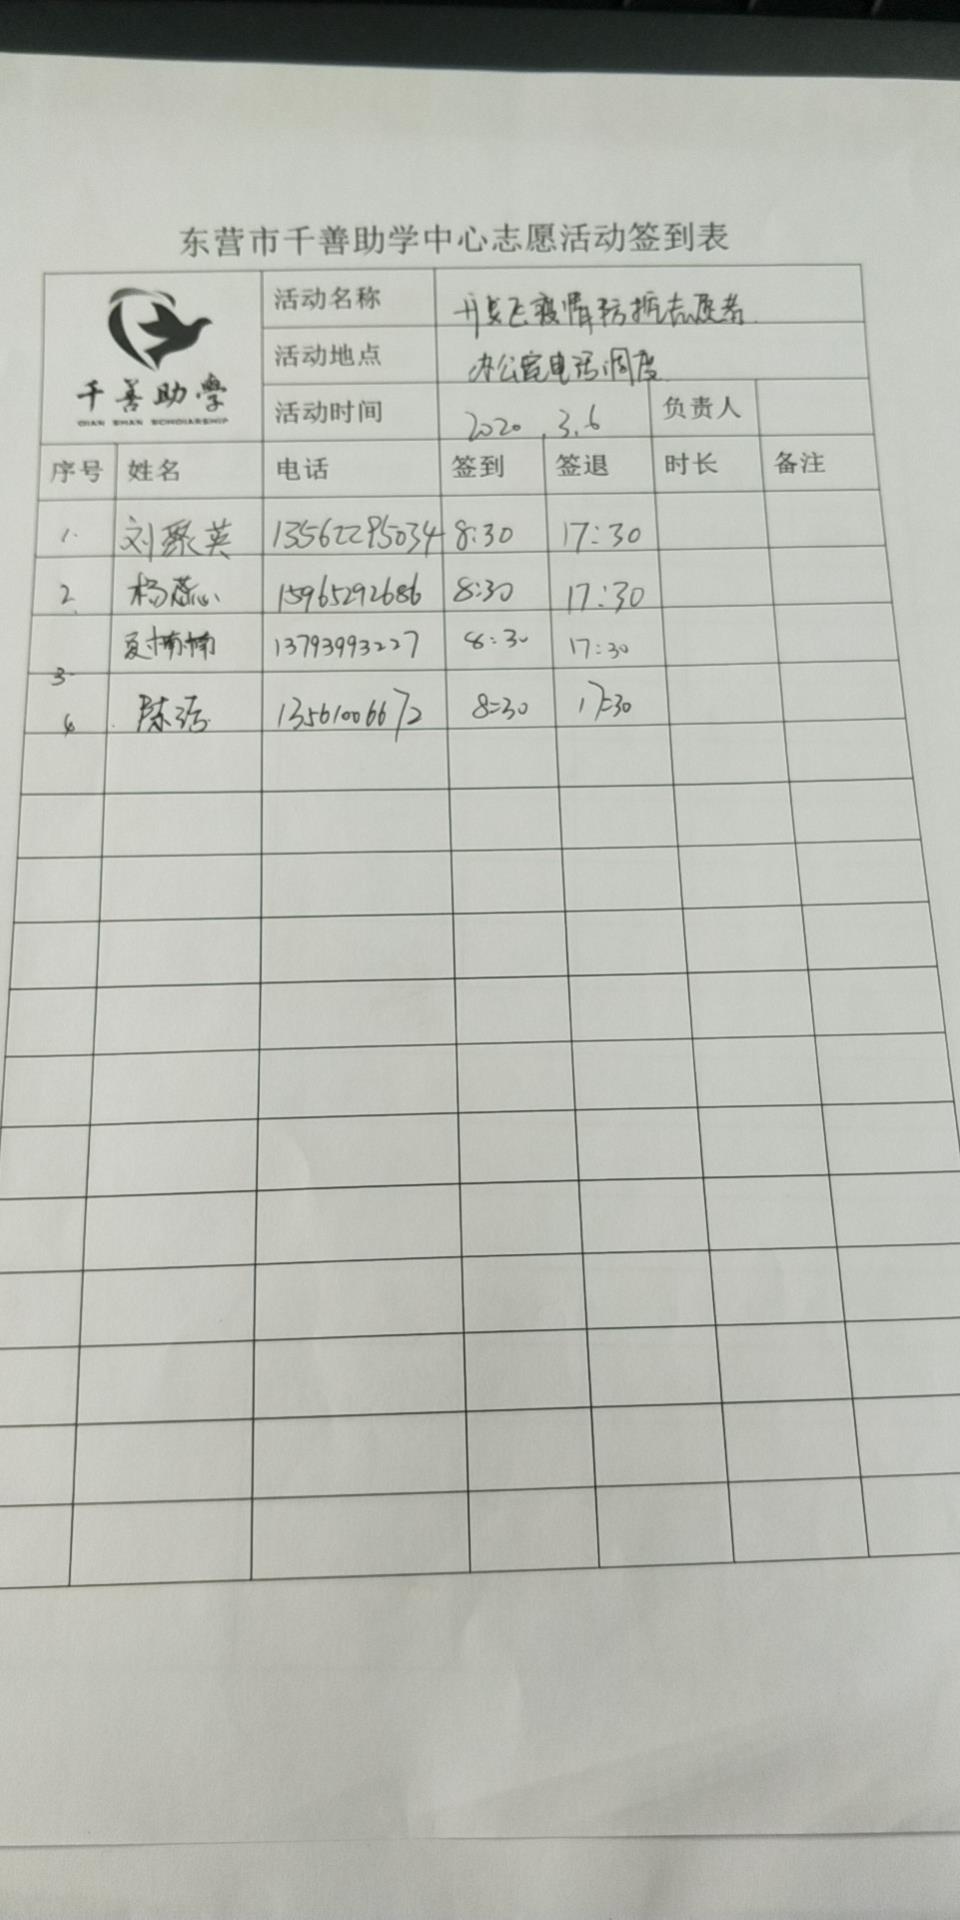 东营市千善助学中心志愿活动签到表
千善助学
QIAN SHAN SCHOLARSHIP
活动名称 疫情防控志愿者
活动地点 办公室电话调度
活动时间 2020.3.6 负责人
序号 姓名 电话 签到 签退 时长 备注
1. 刘聚英 13562295034 8:30 17:30
2 杨蕊心 15965292686 8:30 17:30
3. 夏楠楠 13793993227 8:30 17:30
4 陈洁 13561006672 8:30 17:30